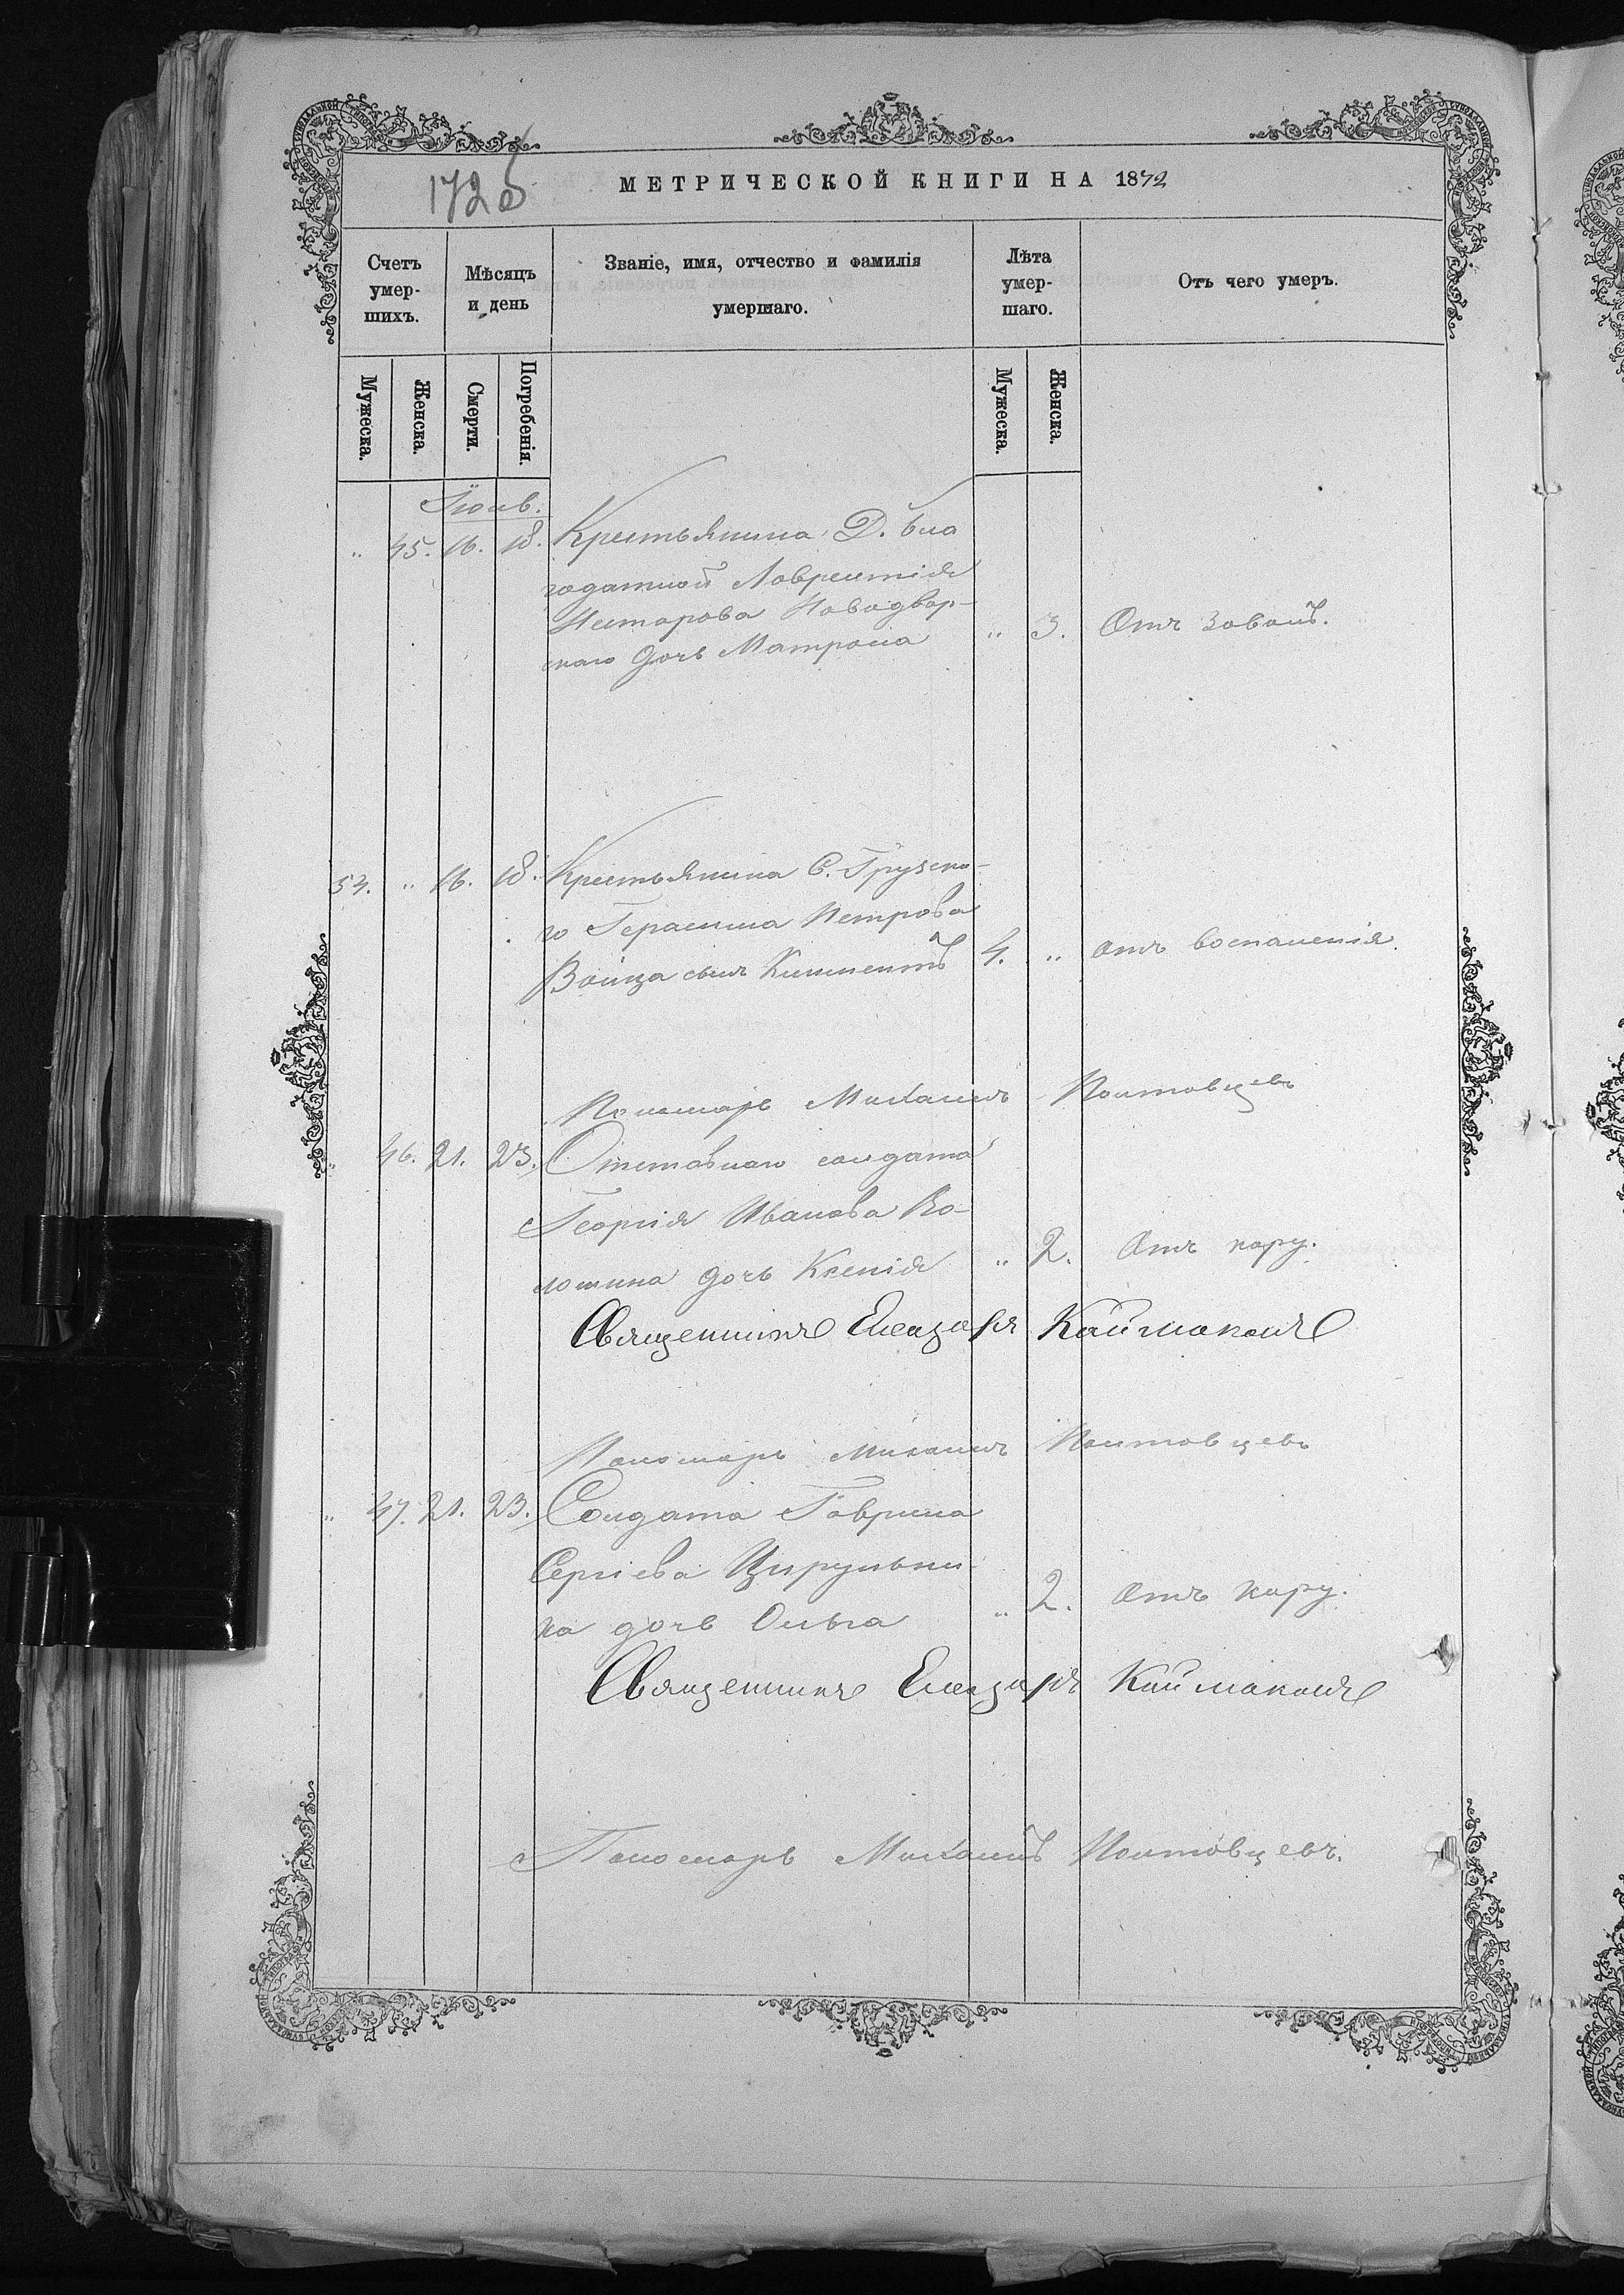 172 б
МЕТРИЧЕСКОЙ КНИГИ НА 1872
Счетъ умер- шихъ.
Мѣсяцъ и день
Званіе, имя, отчество и фамилія умершаго.
Лѣта умер- шаго.
Отъ чего умеръ.
Мужеска. Женска. Смерти. Погребенія. Мужеска. Женска.
Іюль.
" 45. 16. 18. Крестьянина Д. Бла
годатной Лаврентія
Нестарова Новодвор-
скаго дочь Матрона " 3. Отъ
54. " 16. 18. Крестьянина С. Грузско-
го Герасима Петрова
Воица сынъ Климентъ 4. " отъ воспаленія.
Пономарь Михаилъ Полтовцевъ
" 46. 21. 23. Отставнаго солдата
Георгія Иванова Во-
лошина дочь Ксенія " 2. Отъ кору.
Священникъ Елеазаръ Каймаканъ
Пономарь Михаилъ Полтовцевъ
" 47. 21. 23. Солдата Гаврила
Сергіева Цирульни-
ка дочь Ольга " 2. отъ кору.
Священникъ Елеазаръ Каймаканъ
Пономарь Михаилъ Полтовцевъ.